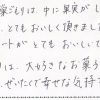 ごもりは、中に果実がし
とてもおいしく頂きまし
ートがとてもおいしいで
は、大きさなお菓
ぜいたくで幸せな気持